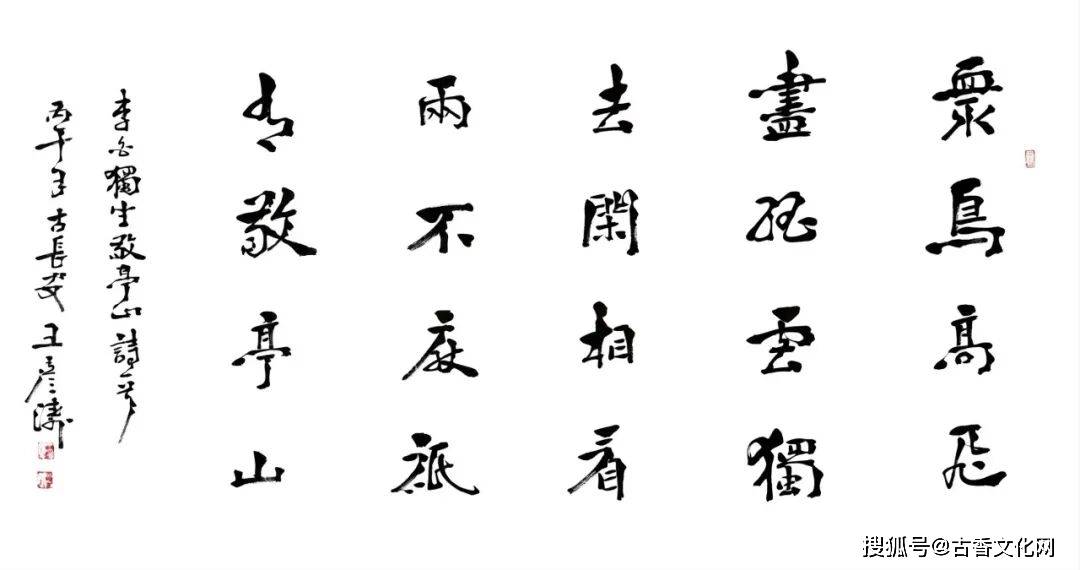 衆鳥高飛
盡孤雲獨
去閑相看
兩不厭祗
有敬亭山
李白獨坐敬亭山詩一首
丙午年古長安王彥濤
搜狐号@古香文化网